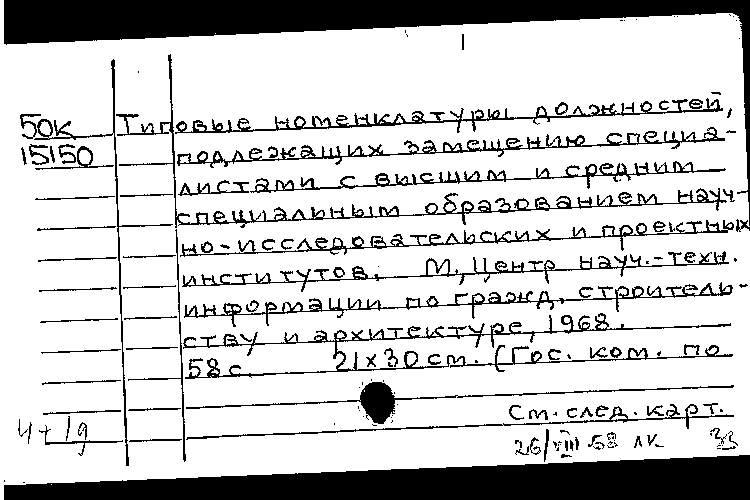 50К Типовые номенклатуры должностей,
15150 подлежащих замещению специа-
листами с высшим и средним
специальным образованием науч-
но-исследовательских и проектных
институтов. М., Центр науч.-техн.
информации по гражд. строитель-
ству и архитектуре, 1968.
58 с. 21x30 см. (Гос. ком. по
См. след. карт.
26/VIII 68 ЛК